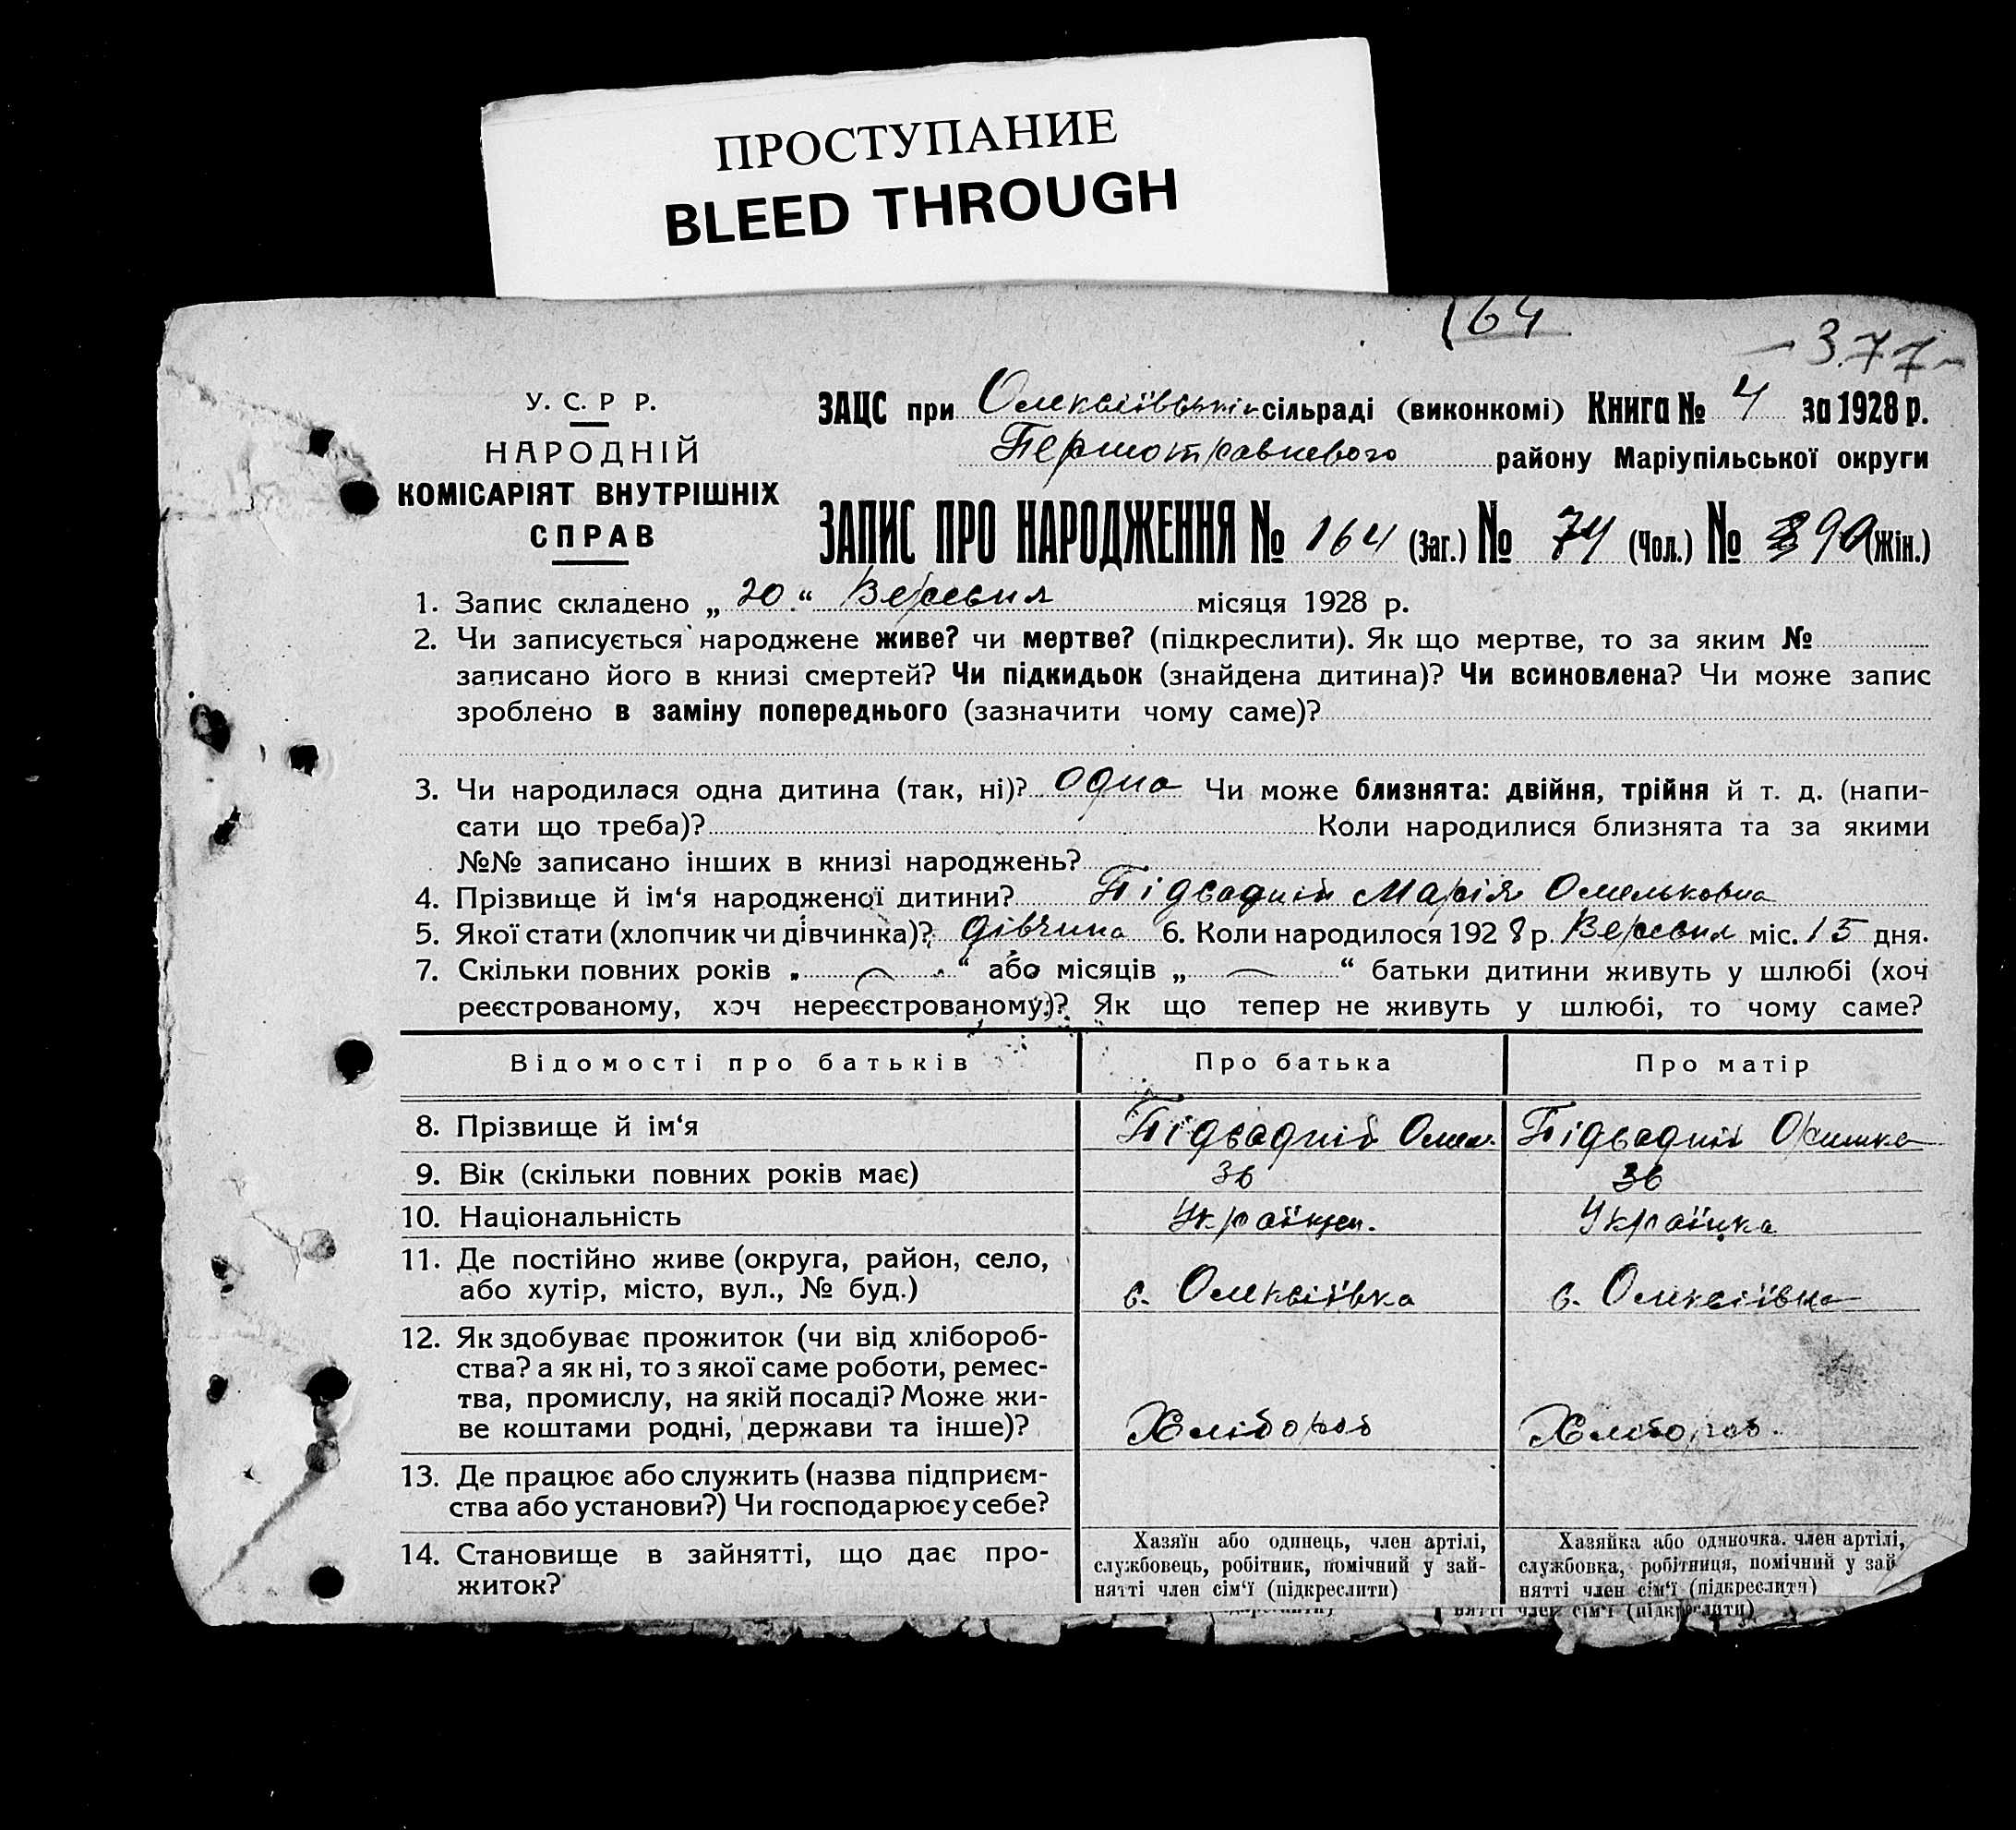 ПРОСТУПАНИЕ
BLEED THROUGH
164
- 377 -
У. С. Р Р.
НАРОДНІЙ
КОМІСАРІЯТ ВНУТРІШНІХ
СПРАВ
ЗАЦС при Олексіївській сільраді (виконкомі) Книга № 4 за 1928 р.
Першотравневого району Маріупільської округи
ЗАПИС ПРО НАРОДЖЕННЯ № 164 (Заг.) № 74 (Чол.) № 90 (Жін.)
1. Запис складено „ 20 “ Вересня місяця 1928 р.
2. Чи записується народжене живе? чи мертве? (підкреслити). Як що мертве, то за яким №
записано його в книзі смертей? Чи підкидьок (знайдена дитина)? Чи всиновлена? Чи може запис
зроблено в заміну попереднього (зазначити чому саме)?
3. Чи народилася одна дитина (так, ні)? Одна Чи може близнята: двійня, трійня й т. д. (напи-
сати що треба)? Коли народилися близнята та за якими
№№ записано інших в книзі народжень?
4. Прізвище й ім‘я народженої дитини? Марія Омельковна
5. Якої стати (хлопчик чи дівчинка)? дівчина 6. Коли народилося 1928 р. Вересня міс. 15 дня.
7. Скільки повних років „ “ або місяців „ “ батьки дитини живуть у шлюбі (хоч
реєстрованому, хоч нереєстрованому)? Як що тепер не живуть у шлюбі, то чому саме?
Відомості про батьків Про батька Про матір
8. Прізвище й ім‘я Омел.
9. Вік (скільки повних років має) 36 36
10. Національність Українец. Українка
11. Де постійно живе (округа, район, село,
або хутір, місто, вул., № буд.) с. Олексіївка с. Олексіївка
12. Як здобуває прожиток (чи від хлібороб-
ства? а як ні, то з якої саме роботи, ремес-
тва, промислу, на якій посаді? Може жи-
ве коштами родні, держави та інше)? Хлібороб Хлібороб.
13. Де працює або служить (назва підприєм-
ства або установи?) Чи господарює у себе?
14. Становище в зайнятті, що дає про-
житок?
Хазяїн або одинець, член артілі,
службовець, робітник, помічний у зай-
нятті член сім‘ї (підкреслити)
Хазяйка або одиночка. член артілі,
службовка, робітниця, помічний у зай
нятті член сім‘ї (підкреслити)
нятті член сім‘ї (підкреслити)